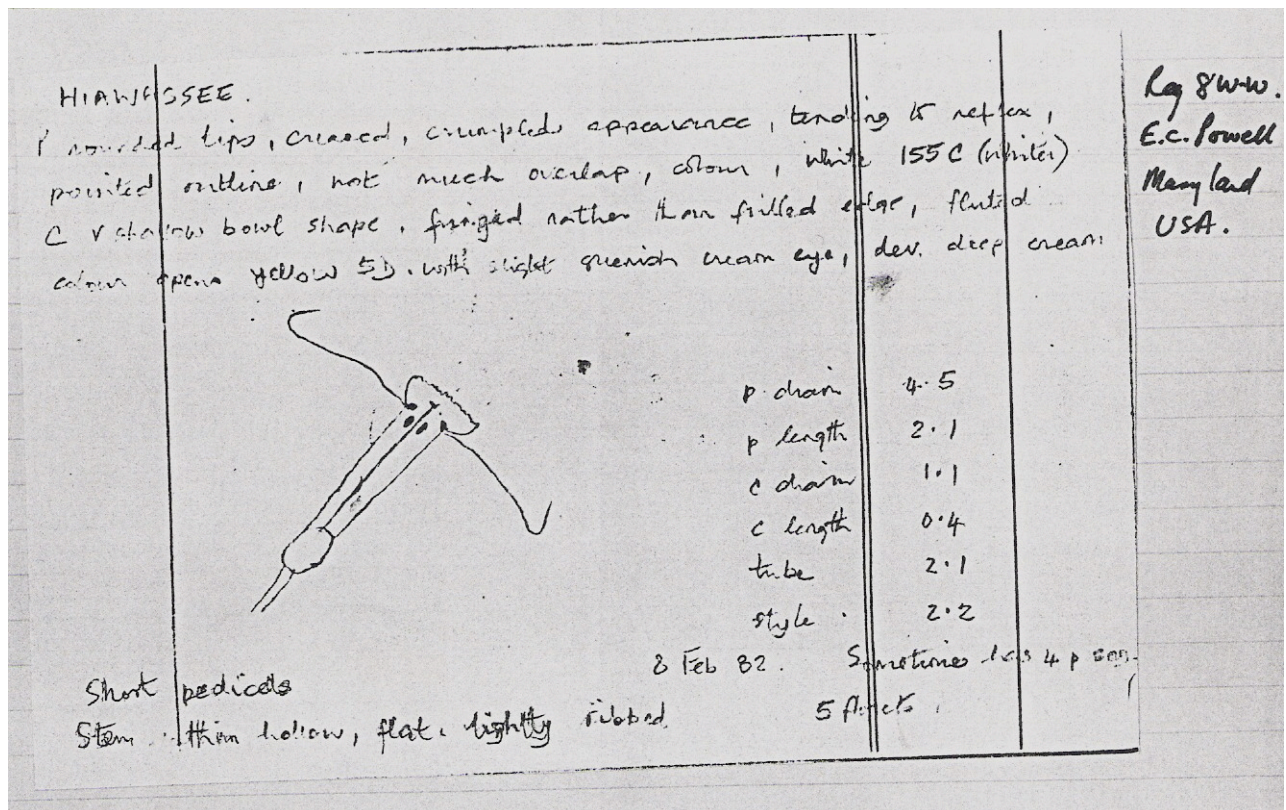 HIAWASSEE.
P rounded tips, creased, crumpled appearance, tending to reflex,
pointed outline, not much overlap, colour, white 155C (whiter)
C v shallow bowl shape, fringed rather than frilled edge, fluted
colour opens yellow 5D. with slight greenish cream eye, dev. deep cream
Reg 8W-W.
E.C. Powell
Maryland
USA.
p diam 4.5
p length 2.1
c diam 1.1
c length 0.4
tube 2.1
style. 2.2
8 Feb 82. Sometimes has 4 p
Short pedicels 5 florets.
Stem thin hollow, flat, lightly ribbed